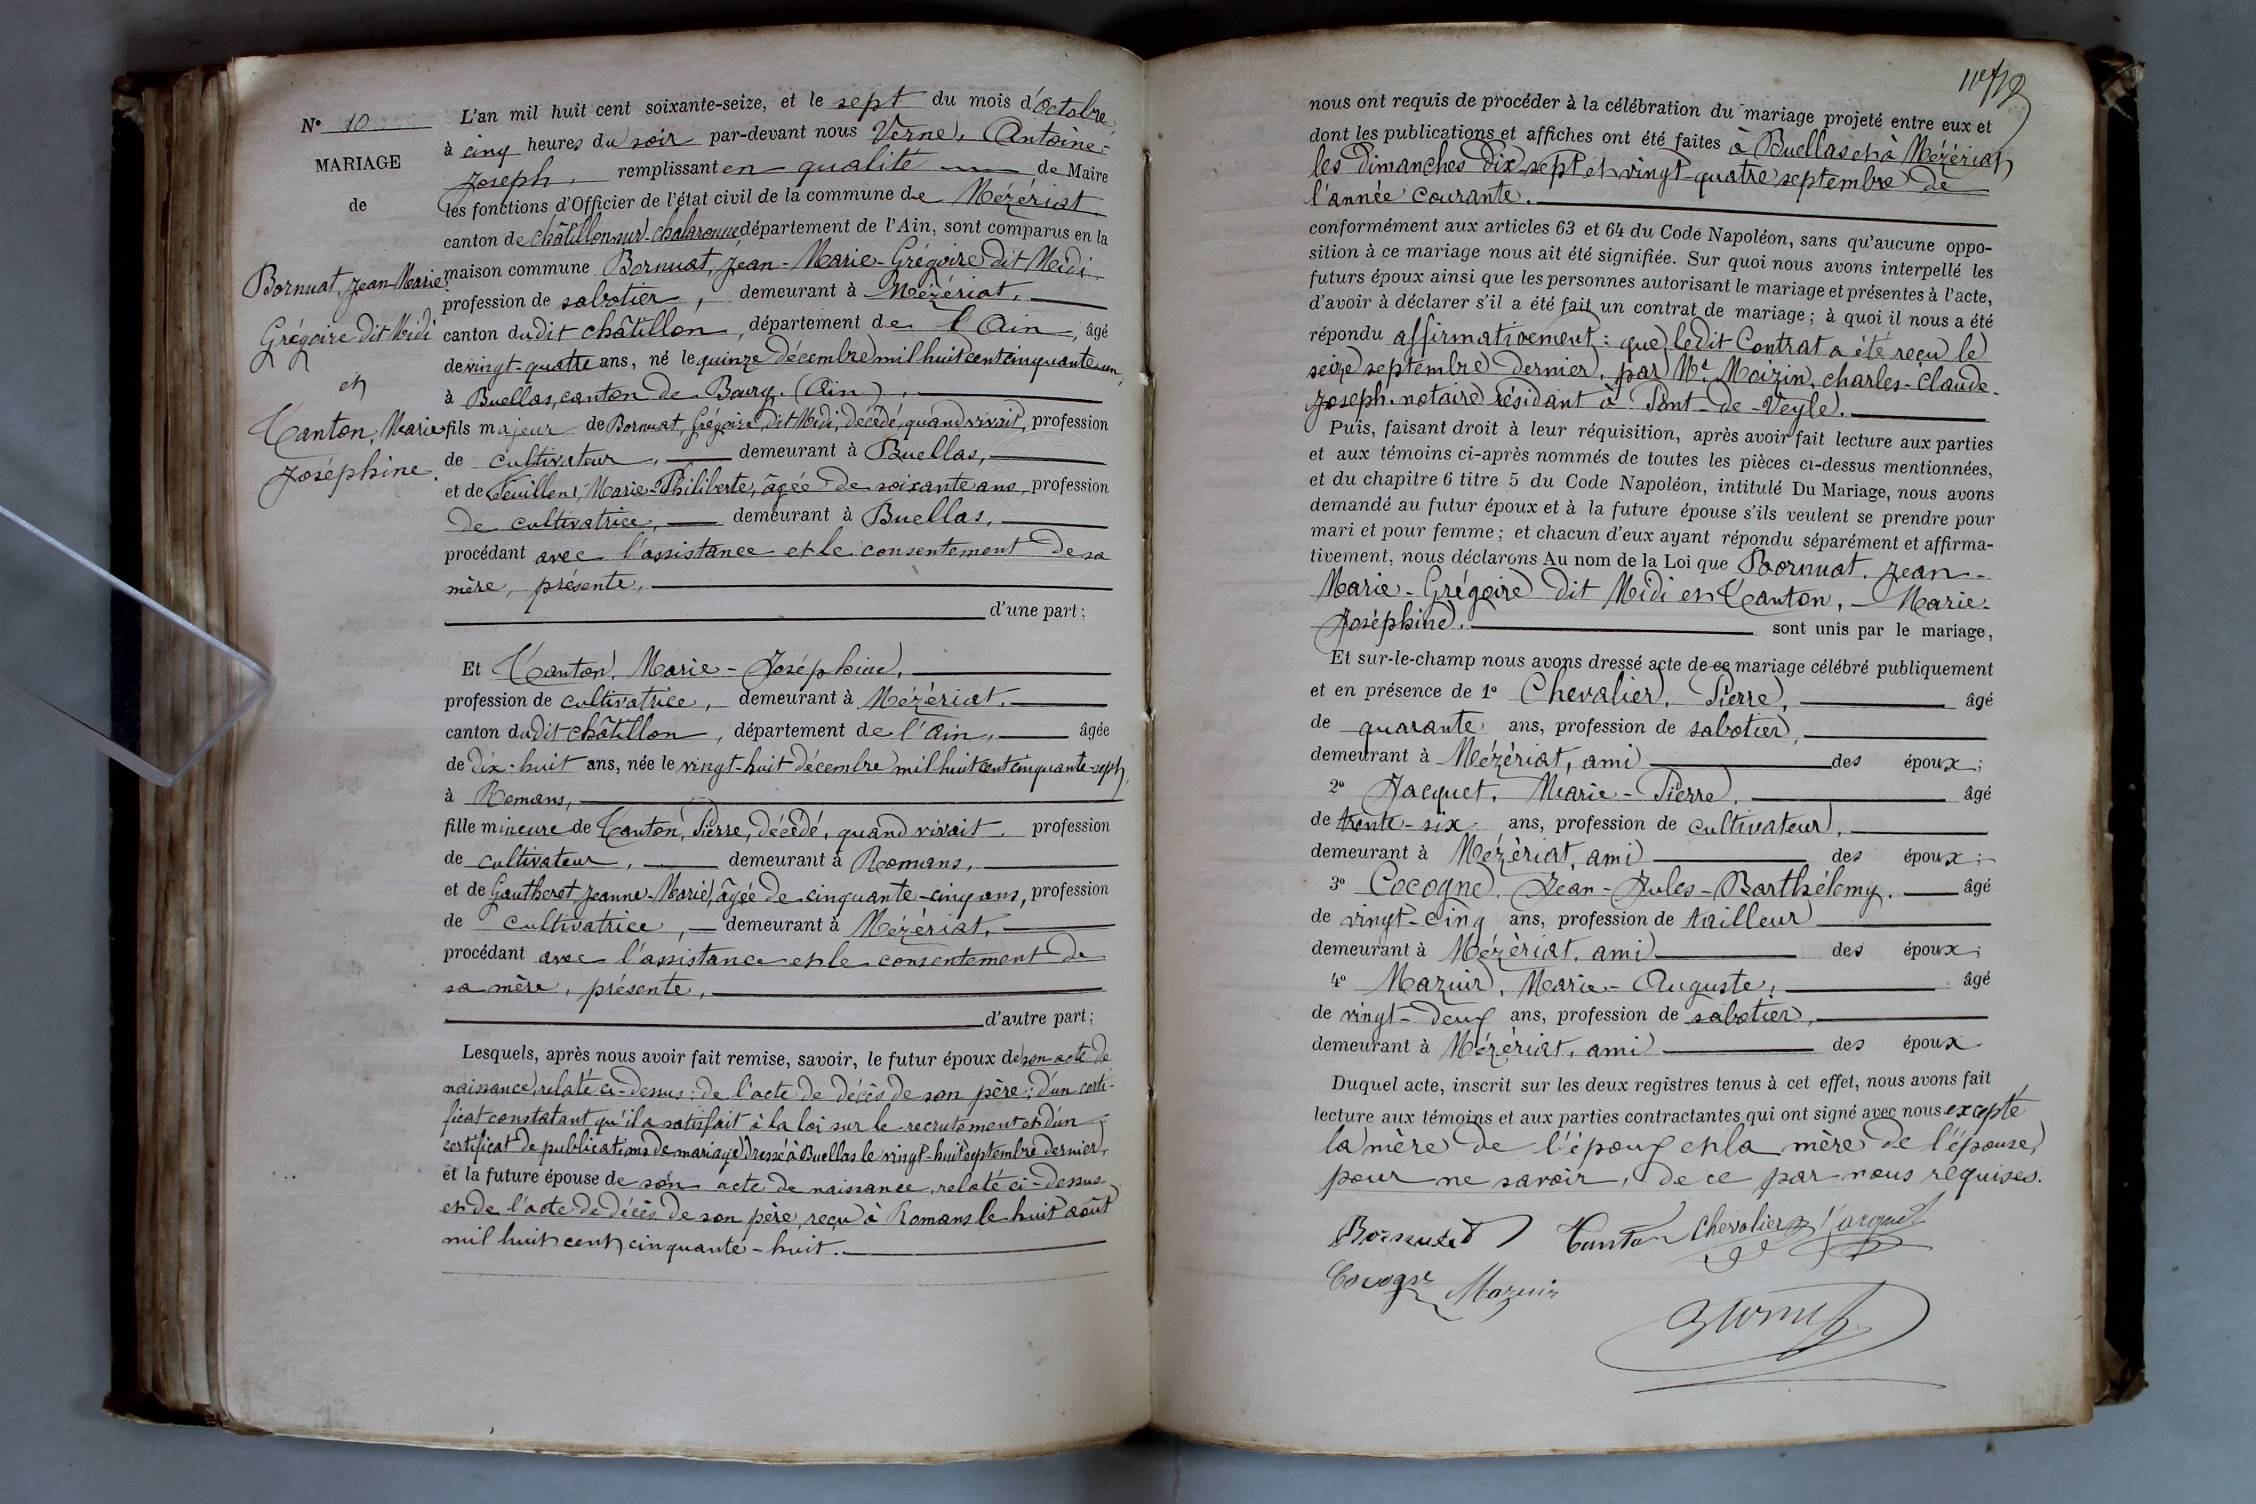 N° 10
MARIAGE
de
Bornuat, Jean Marie
Grégoire dit Midi
et
Canton, Marie
Joséphine.
L'an mil huit cent soixante-seize, et le sept du mois d'Octobre,
à cinq heures du soir par-devant nous Verne, Antoine-
Joseph, remplissant en qualité de Maire
les fonctions d'Officier de l'état civil de la commune de Mézériat,
canton de Châtillon-sur-Chalaronne département de l'Ain, sont comparus en la
maison commune Bornuat, Jean-Marie-Grégoire dit Midi
profession de sabotier, demeurant à Mézériat,
canton dudit châtillon, département de l'Ain, âgé
de vingt-quatre ans, né le quinze décembre mil huit cent cinquante-un,
à Buellas, canton de Bourg. (Ain),
fils majeur de Bornuat, Grégoire, dit Midi, décédé, quand vivait, profession
de cultivateur, demeurant à Buellas,
et de Marie-Philiberte, âgée de soixante ans, profession
de cultivatrice, demeurant à Buellas,
procédant avec l'assistance et le consentement de sa
mère, présente,
d'une part;
Et Canton, Marie-Joséphine,
profession de cultivatrice, demeurant à Mézériat,
canton dudit châtillon, département de l'Ain, âgée
de dix-huit ans, née le vingt-huit décembre mil huit cent cinquante-sept,
à Romans,
fille mineure de Canton, Pierre, décédé, quand vivait, profession
de cultivateur, demeurant à Romans,
et de Gautheret, Jeanne-Marie, âgée de cinquante-cinq ans, profession
de cultivatrice, demeurant à Mézériat,
procédant avec l'assistance et le consentement de
sa mère, présente,
d'autre part;
Lesquels, après nous avoir fait remise, savoir, le futur époux de son acte de
naissance, relaté ci-dessus: de l'acte de décès de son père; d'un certi-
ficat constatant qu'il a satisfait à la loi sur le recrutement et d'un
certificat de publications de mariage dressé à Buellas le vingt-huit septembre dernier,
et la future épouse de son acte de naissance, relaté ci-dessus
et de l'acte de décès de son père, reçu à Romans le huit août
mil huit cent cinquante-huit.
nous ont requis de procéder à la célébration du mariage projeté entre eux et
dont les publications et affiches ont été faites à Buellas et à Mézériat
les dimanches dix-sept et vingt-quatre septembre de
l'année courante.
conformément aux articles 63 et 64 du Code Napoléon, sans qu'aucune oppo-
sition à ce mariage nous ait été signifiée. Sur quoi nous avons interpellé les
futurs époux ainsi que les personnes autorisant le mariage et présentes à l'acte,
d'avoir à déclarer s'il a été fait un contrat de mariage; à quoi il nous a été
répondu affirmativement: que ledit Contrat a été reçu le
seize septembre dernier, par Me Moizin, charles-claude-
Joseph, notaire résidant à Pont-de-Veyle.
Puis, faisant droit à leur réquisition, après avoir fait lecture aux parties
et aux témoins ci-après nommés de toutes les pièces ci-dessus mentionnées,
et du chapitre 6 titre 5 du Code Napoléon, intitulé Du Mariage, nous avons
demandé au futur époux et à la future épouse s'ils veulent se prendre pour
mari et pour femme; et chacun d'eux ayant répondu séparément et affirma-
tivement, nous déclarons Au nom de la Loi que Bornuat, Jean-
Marie-Grégoire dit Midi et Canton, Marie-
Joséphine, sont unis par le mariage,
Et sur-le-champ nous avons dressé acte de ce mariage célébré publiquement
et en présence de 1° Chevalier, Pierre, âgé
de quarante ans, profession de sabotier,
demeurant à Mézériat, ami des époux;
2° Jacquet, Marie-Pierre, âgé
de trente-six ans, profession de cultivateur,
demeurant à Mézériat, ami des époux;
3° Cocogne, Jean-Jules-Barthélemy, âgé
de vingt-cinq ans, profession de tailleur
demeurant à Mézériat, ami des époux;
4° Mazuir, Marie-Auguste, âgé
de vingt-deux ans, profession de sabotier,
demeurant à Mézériat, ami des époux
Duquel acte, inscrit sur les deux registres tenus à cet effet, nous avons fait
lecture aux témoins et aux parties contractantes qui ont signé avec nous excepté
la mère de l'époux et la mère de l'épouse,
pour ne savoir, de ce par nous requises.
Bornuat Canton Chevalier Jacquet
Cocogne Mazuir
Verne